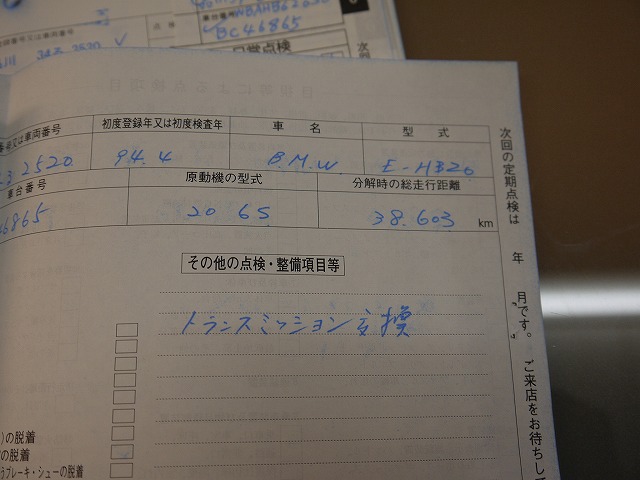 WBAHB62030
車台番号
BC46865
又は車両番号
点検
2520
日常点検
次回
又は車両番号
初度登録年又は初度検査年
車名
型式
2520
94.4
B.M.W.
E-HB20
車台番号
原動機の型式
分解時の総走行距離
6865
20 6S
38.603 km
その他の点検・整備項目等
トランスミッション交換
の脱着
の脱着
うブレーキ・シューの脱着
次回の定期点検は 年 月です。 ご来店をお待ちし